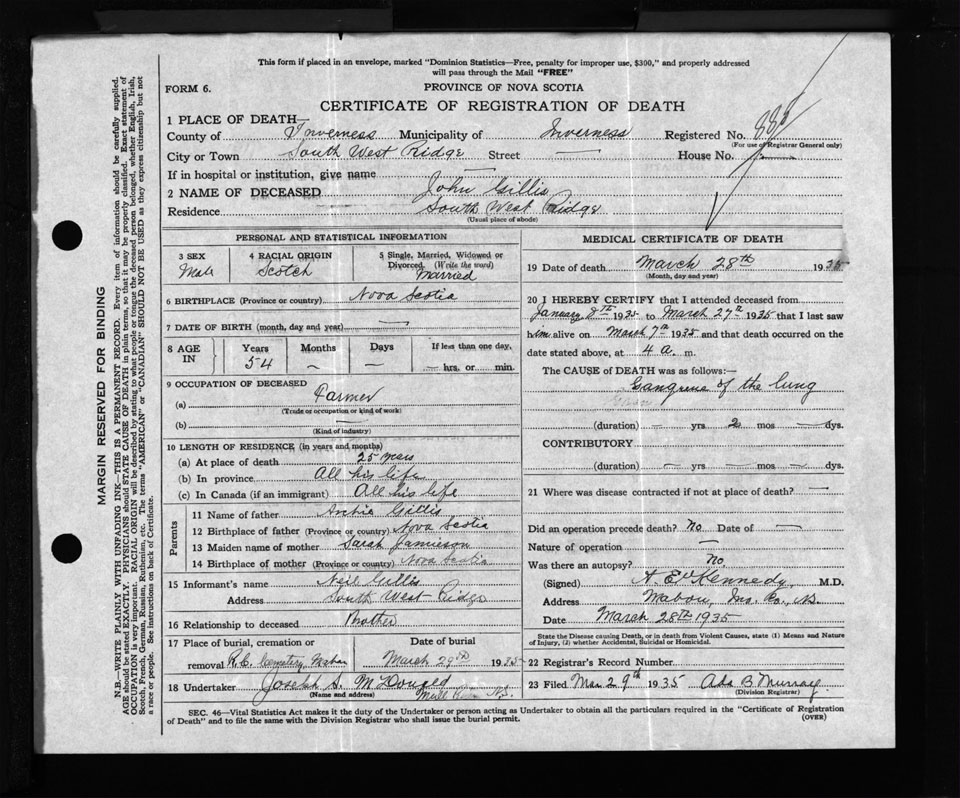 This form if placed in an envelope, marked "Dominion Statistics—Free, penalty for improper use, $300," and properly addressed
will pass through the Mail "FREE"
FORM 6.
PROVINCE OF NOVA SCOTIA
CERTIFICATE OF REGISTRATION OF DEATH
1 PLACE OF DEATH
County of Inverness Municipality of Inverness Registered No.
(For use of Registrar General only)
City or Town South West Ridge Street — House No.
If in hospital or institution, give name —
2 NAME OF DECEASED John Gillis
Residence South West Ridge
(Usual place of abode)
PERSONAL AND STATISTICAL INFORMATION
3 SEX Male 4 RACIAL ORIGIN Scotch 5 Single, Married, Widowed or Divorced. (Write the word) Married
6 BIRTHPLACE (Province or country) Nova Scotia
7 DATE OF BIRTH (month, day and year) —
8 AGE IN Years 54 Months — Days — If less than one day, — hrs. or min.
9 OCCUPATION OF DECEASED
(a) Farmer
(Trade or occupation or kind of work)
(b) —
(Kind of industry)
10 LENGTH OF RESIDENCE (in years and months)
(a) At place of death 25 years
(b) In province All his life
(c) In Canada (if an immigrant) All his life
Parents
11 Name of father Archie Gillis
12 Birthplace of father (Province or country) Nova Scotia
13 Maiden name of mother Sarah Jamieson
14 Birthplace of mother (Province or country) Nova Scotia
15 Informant's name Neil Gillis
Address South West Ridge
16 Relationship to deceased Brother
17 Place of burial, cremation or removal R.C. Cemetery, Mabou Date of burial March 29th 1935
18 Undertaker Joseph S. McDonald
(Name and address)
MEDICAL CERTIFICATE OF DEATH
19 Date of death March 28th 1935
(Month, day and year)
20 I HEREBY CERTIFY that I attended deceased from
January 8th 1935 to March 27th 1935 that I last saw
him alive on March 7th 1935 and that death occurred on
date stated above, at 4 a. m.
The CAUSE of DEATH was as follows:—
Gangrene of the lung
(duration) — yrs 2 mos — dys.
CONTRIBUTORY
(duration) — yrs — mos — dys.
21 Where was disease contracted if not at place of death? —
Did an operation precede death? No Date of —
Nature of operation —
Was there an autopsy? No.
(Signed) Kennedy M.D.
Address Mabou, Inv. Co., N.S.
Date March 28th 1935
State the Disease causing Death, or in death from Violent Causes, state (1) Means and Nature
of Injury, (2) whether Accidental, Suicidal or Homicidal.
22 Registrar's Record Number
23 Filed Mar 29th 1935 Ada B. Murray
(Division Registrar)
SEC. 46—Vital Statistics Act makes it the duty of the Undertaker or person acting as Undertaker to obtain all the particulars required in the "Certificate of Registration
of Death" and to file the same with the Division Registrar who shall issue the burial permit.
(OVER)
MARGIN RESERVED FOR BINDING
N.B.—WRITE PLAINLY WITH UNFADING INK—THIS IS A PERMANENT RECORD. Every item of information should be carefully supplied.
AGE should be stated EXACTLY. PHYSICIANS should STATE CAUSE OF DEATH in plain terms, so that it may be properly classified. Exact statement of
OCCUPATION is very important. RACIAL ORIGIN will be described by stating to what people or tongue the deceased person belonged, whether English, Irish,
Scotch, French, German, Russian, Ruthenian, etc. The terms "AMERICAN" or "CANADIAN" SHOULD NOT BE USED as they express citizenship but not
a race or people. See instructions on back of Certificate.